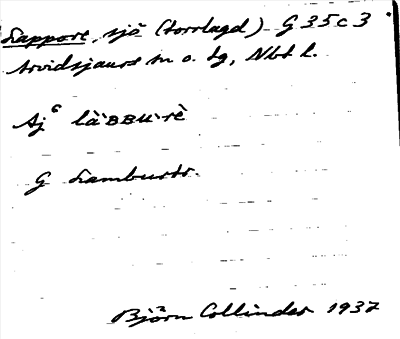 Lappore, sjö (torrlagd) G 35 c 3
Arvidsjaurs sn o. tg, Nbt l.
Aj⁶ là`BBU`rè
G Lambustr.
Björn Collinder 1937